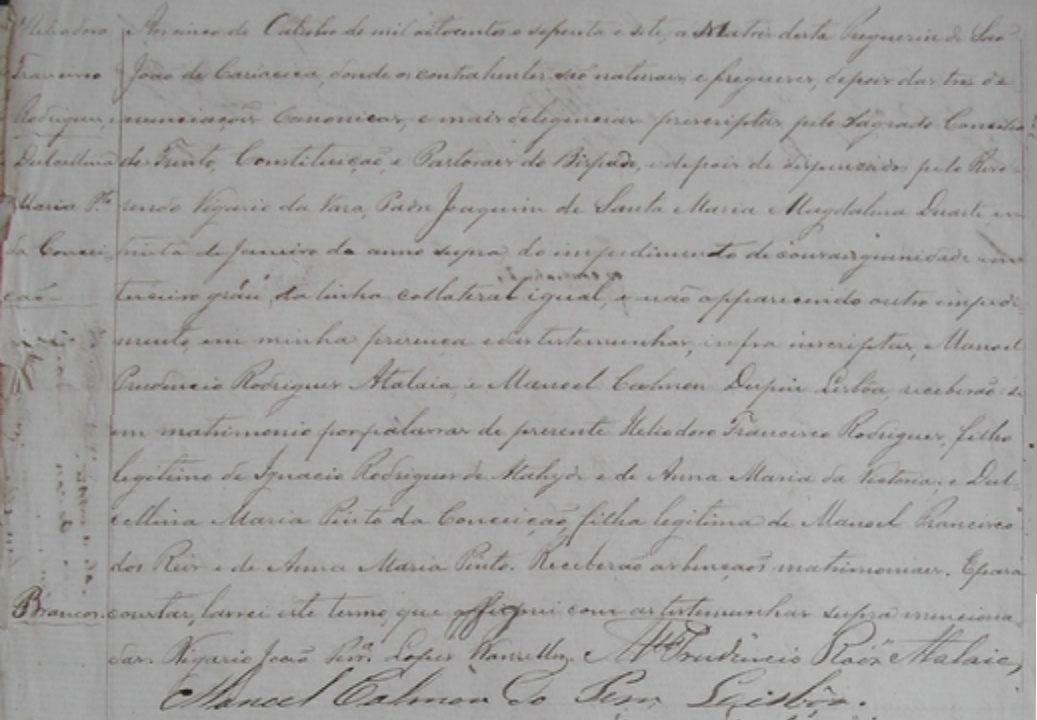 Heliodoro
Francisco
Rodrigues, e
Dulcellina
Maria P.to
da Concei
ção
Brancos.
Aos cinco de Outubro de mil oitocentos e setenta e sete, a Matriz desta Freguezia de São
João de Cariacica, donde os contrahentes são naturaes, e freguezes, depois das tres de
nunciaçoes Canonicas, e mais deligencias prescriptas pelo Sagrado Concilio
de Trento, Constituição, e Pastoraes do Bispado, e depois de dispensados pelo Reve
rendo Vigario da Vara, Padre Joaquim de Santa Maria e Magdalena Duarte em
trinta de Janeiro do anno supra do impedimento de consanguinidade em
terceiro gráu da linha collateral igual, e não apparecendo outro impedi
mento, em minha presença e das testemunhas, infra inscriptas, Manoel
Prudencio Rodrigues Atalaia, e Manoel Calmon Lisbôa, receberão-se
em matrimonio por palavras de presente Heliodoro Francisco Rodrigues, filho
legitimo de Ignacio Rodrigues de e de Anna Maria da Victoria, e Dul
cellina Maria Pinto da Conceição, filha legitima de Manoel Francisco
dos Reis e de Anna Maria Pinto. Receberão as bençaõs matrimoniaes. E para
constar, lavrei este termo, que assignei com as testemunhas supra menciona
das. Vigario João Lopes Wanzeller
Prudencio Roiz Atalaia,
Manoel Calmon Lisbôa.